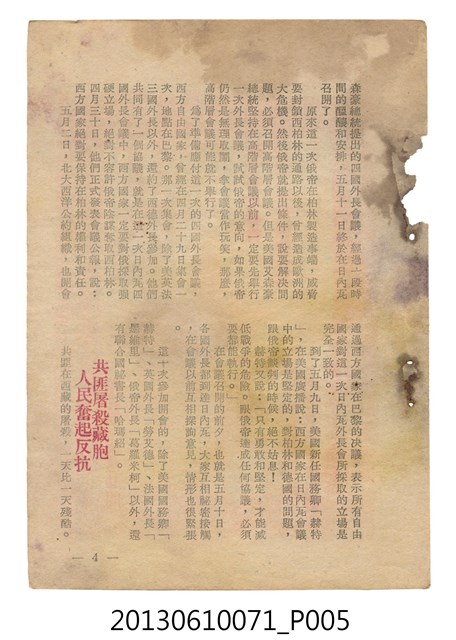 森豪總統提出的四國外長會議，經過一段時
間的醞釀和安排，五月十一日終於在日內瓦
召開了。
原來這一次俄帝在柏林製造事端，威脅
要封鎖西柏林的通路以後，曾經造成歐洲的
大危機。然後俄帝就提出條件，說要解決問
題，必須召開高階層會議。但是美國艾森豪
總統堅持在高階層會議以前，一定要先舉行
一次外長會議，試試俄帝的意向，如果俄帝
仍然是無理取鬧，拿會議當作玩笑，那麼，
高階層會議可能就不舉行了。
爲了準備應付這一次的四國外長會議，
西方自由國家，曾經在四月二十九日集會一
次，地點在巴黎。那一次集會，除了美英法
三國外長以外，還約了西德外長參加。他們
共同有了一個協議，就是在這一次日內瓦四
國外長會議中，西方國家一定要對俄採取強
硬立場，絕對不容許俄帝陰謀奪取西柏林。
四月三十日，他們正式發表會議公報，說：
西方國家絕對要保持在柏林的權利和責任。
五月二日，北大西洋公約組織，也開會
通過西方國家在巴黎的決議，表示所有自由
國家對這一次日內瓦外長會所採取的立場是
完全一致的。
到了五月九日，美國新任國務卿「赫特
」，在美國廣播說：西方國家在日內瓦會議
中的立場是堅定的，對柏林和德國的問題，
跟俄帝談判的時候，絕不姑息！
赫特又說：「只有勇敢和堅定，才能減
低戰爭的危險。跟俄帝達成任何協議，必須
要都能執行。」
在會議召開的前夕，也就是五月十日，
各國外長都到達日內瓦，大家互相秘密接觸
，在會議以前互相探詢意見，情形也很緊張
。
這一次參加開會的，除了美國國務卿「
赫特」、英國外長「勞艾德」、法國外長「
戴維里」、俄帝外長「葛羅米柯」以外，還
有聯合國秘書長「哈瑪紹」。
共匪屠殺藏胞
人民奮起反抗
共匪在西藏的屠殺，一天比一天殘酷。
— 4 —
20130610071_P005